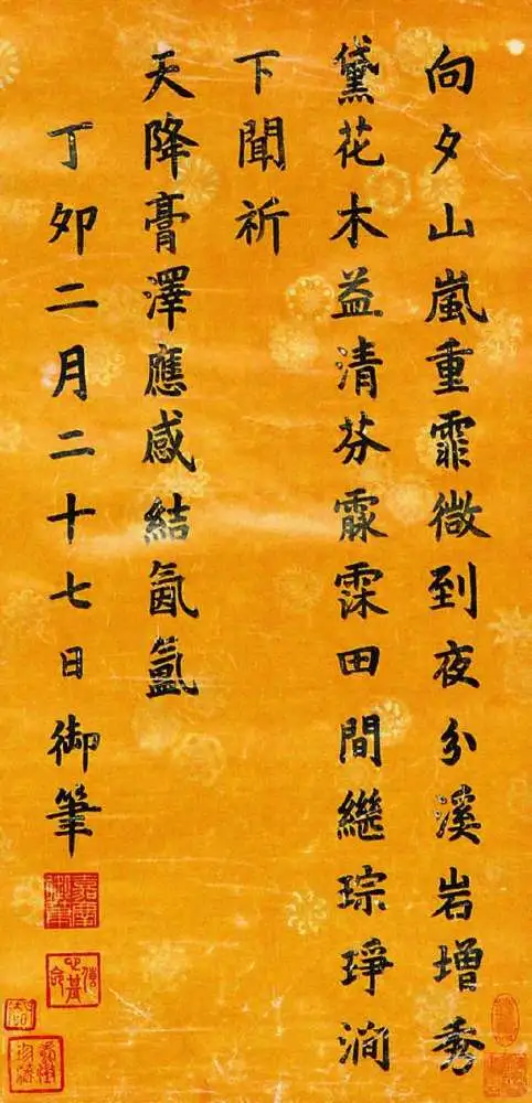 向夕山嵐重霏微到夜分溪岩增秀
黛花木益清芬霢霂田間繼琮琤澗
下聞祈
天降膏澤應感結氤氳
丁卯二月二十七日御筆